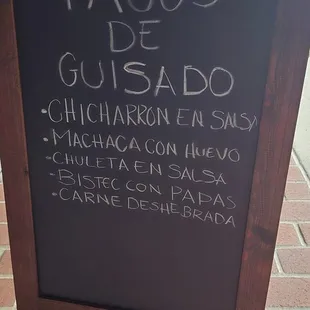 TACOS
DE
GUISADO
•CHICHARRON EN SALSA
•MACHACA CON HUEVO
•CHULETA EN SALSA
•BISTEC CON PAPAS
•CARNE DESHEBRADA